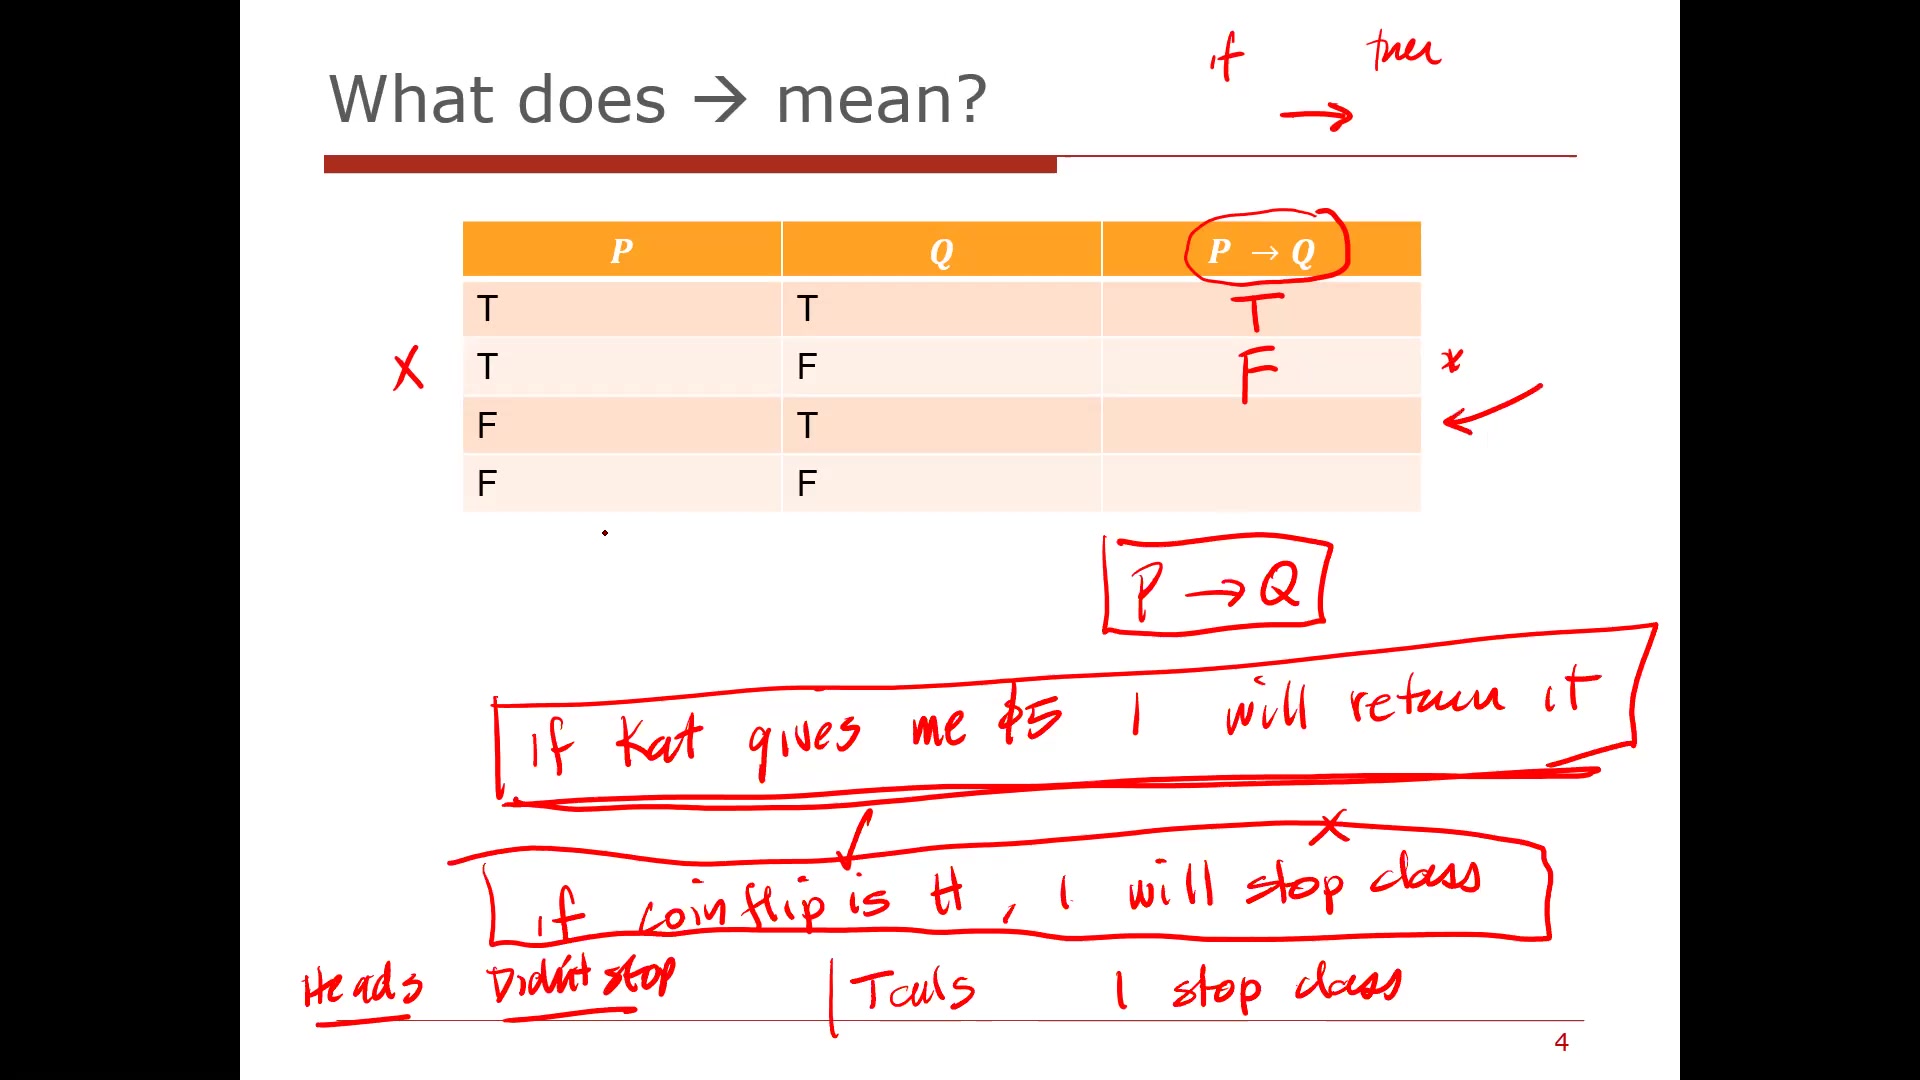 if then
What does → mean?
→
P Q P → Q
T T T
X T F F *
F T
F F
P → Q
if Kat gives me $5 I will return it
if coin flip is H, I will stop class
Heads Didn't stop | Tails I stop class
4